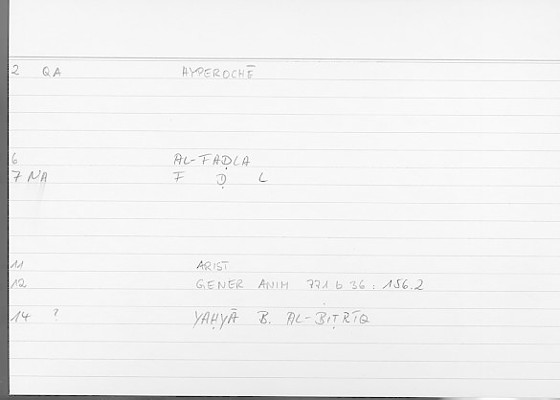 2 QA HYPEROCHĒ
6 AL-FAḌLA
7 NA F Ḍ L
11 ARIST
12 GENER ANIM 771 b 36 : 156.2
14 ? YAḤYĀ B. AL-BIṬRĪQ